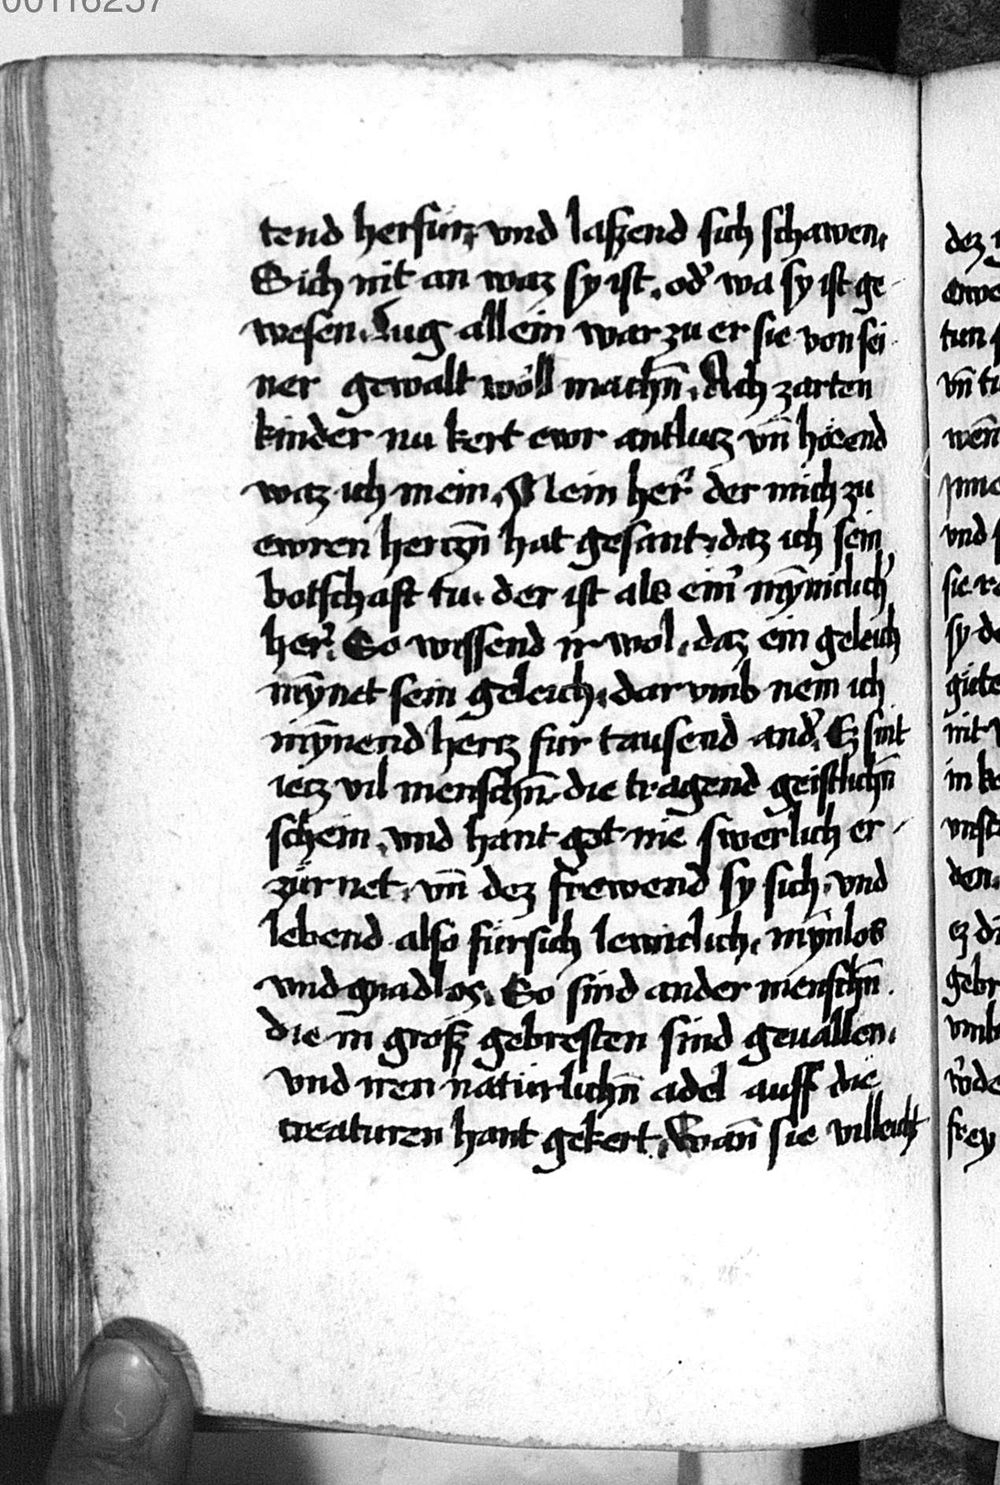 00116257
tend herfürz vnd laßend sich schawen.
Sich nit an waz sy ist. od' wa sy ist ge
wesen. Lug allein war zu er sie von sei
ner gewalt wöll machn̄. Ach zarten
kinder nu kert ewr antlucz vn̄ hörend
waz ich mein. Mein her' der mich zu
ewren herczn̄ hat gesant. daz ich sein
botschaft tu. der ist als ein' mȳniclich'
her'. So wissend ir wol. daz ein geleich
mȳnet sein geleich. dar vmb nem ich
mȳnend hercz für tausend and'. Ez sint
iecz vil menschn̄. die tragend geistlichn̄
schein. vnd hant got nie swerlich er
zürnet. vn̄ dez frewend sy sich. vnd
lebend also fürsich lewiclich. mȳnlos
vnd gnadlos. So sind ander menschn̄.
die in groß gebresten sind geuallen.
vnd iren natürlichn̄ adel auff die
creaturen hant gekert. Wan̄ sie villeicht
dez
tun
vn̄
wēn
vnd
sy
nit
in
vnst
den.
ez
gebr
vmb
frey